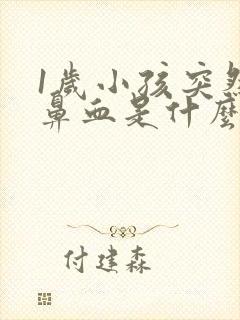 1歲小孩突然
鼻血是什麼
付建森